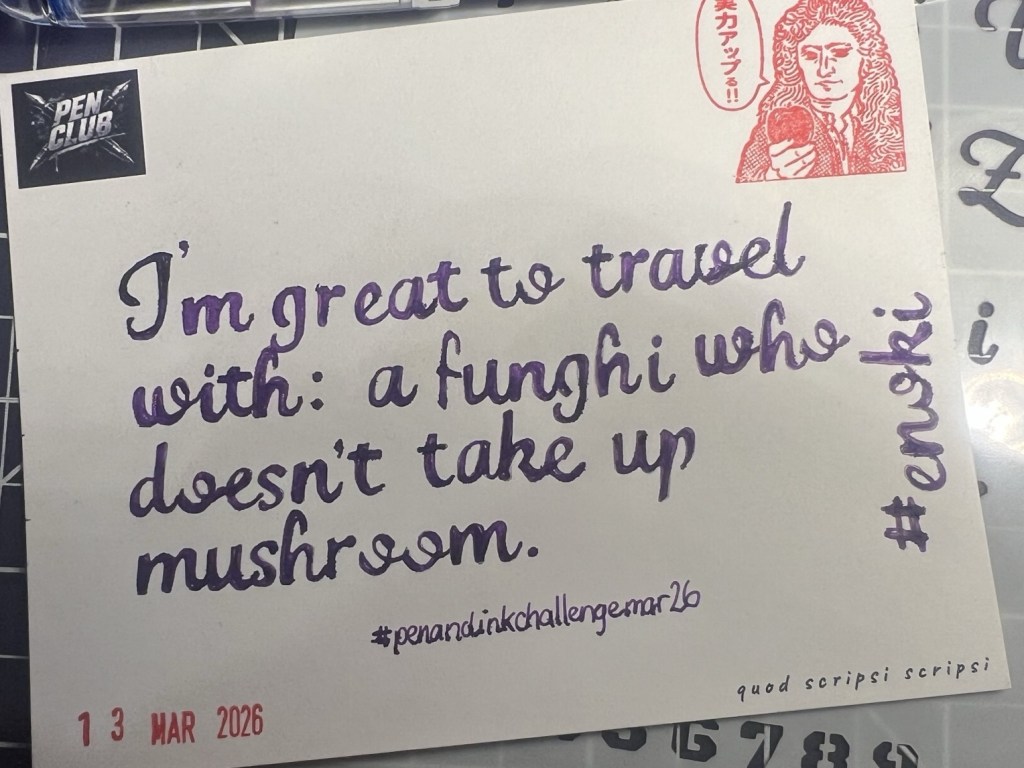 PEN
CLUB
力アップる!!
I'm great to travel
with: a funghi who
doesn't take up
mushroom.
#enoki
#penandinkchallengemar26
quod scripsi scripsi
13 MAR 2026
i
6789